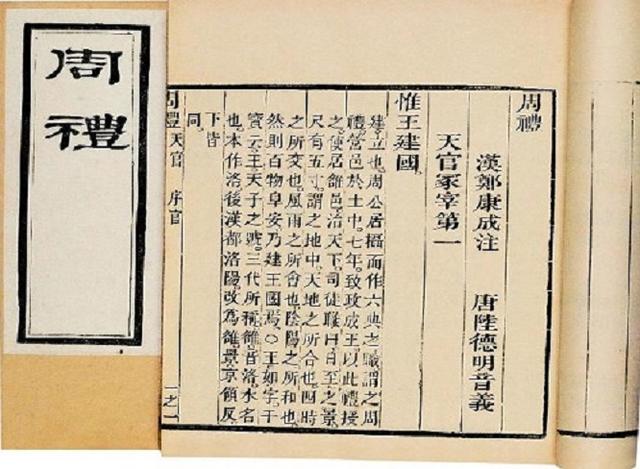 周禮
周禮
漢鄭康成注 唐陸德明音義
天官冢宰第一
惟王建國。
建立也。周公居攝而作六典之職謂之周
禮營邑於土中。七年。致政成王以此禮授
之使居雒邑治天下。司徒職曰日至之景
尺有五寸。謂之地中。天地之所合也四時
之所交也。風雨之所會也陰陽之所和也
然則百物阜安乃建王國焉。○王如字。干
寶云王天子之號。三代所稱。雒音洛。水名
也。本作洛後漢都洛陽。改為雒景京領反
下皆
同。
周禮天官 序官 一之一